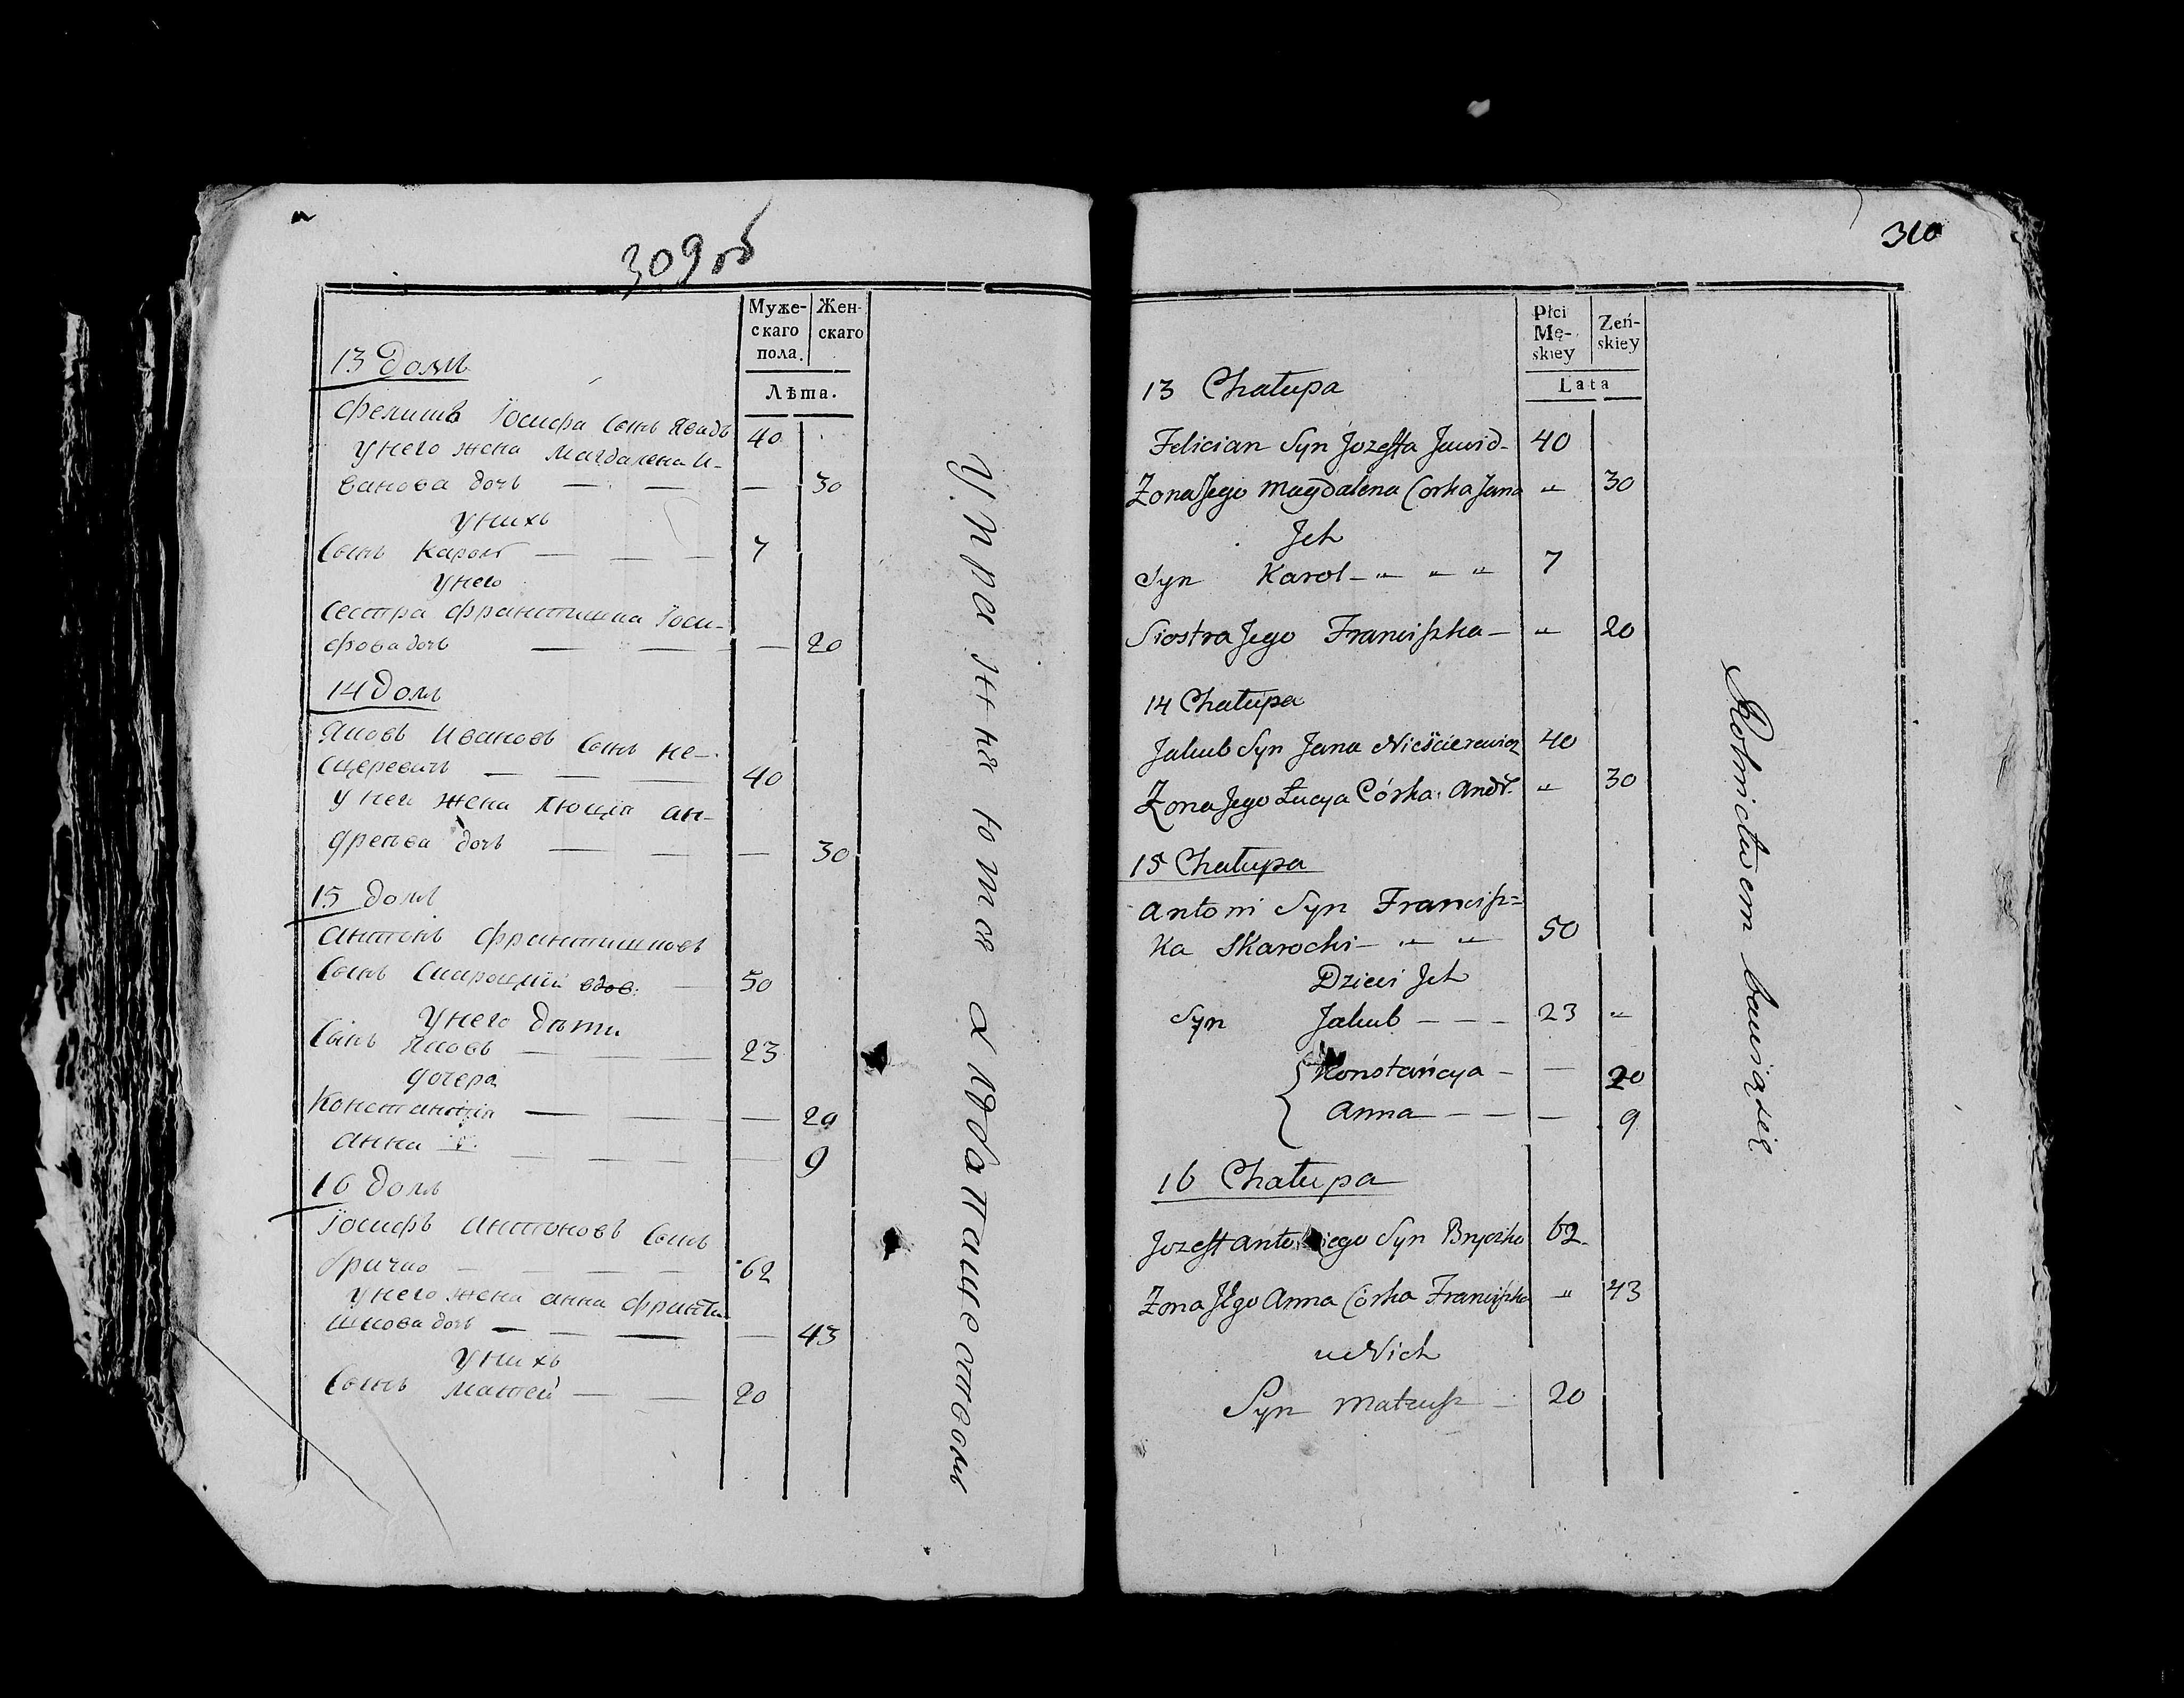 309 об
Муже-
скаго
пола.
Жен-
скаго
Лѣта.
13 домъ
Іосифа сынъ 40
У него жена Магдалена И-
ванова дочь — — — 30
У нихъ
Сынъ Кароль — — — 7
У него
Сестра Франтишка Іоси-
фова дочь — — — 20
14 домъ
Яковъ Ивановъ сынъ Не-
сцеревичъ — — — 40
У него жена Люція Ан-
дреева дочь — — — 30
15 домъ
Антонъ Франтишковъ
Сынъ 50
У него дѣти
Сынъ Яковъ — — — 23
дочери
Констанція — — — 20
Анна — — — 9
16 домъ
Іосифъ Антоновъ сынъ
Бричко — — — — 62
У него жена Анна Франти-
шкова дочь — — — — 43
У нихъ
Сынъ Матей — — 20
Упражняются хлѣбопашествомъ
310
Płci
Mę-
skiey
Zeń-
skiey
Lata
13 Chałupa
Felician Syn Jozeffa 40
Zona Jego Magdalena Corka Jana " 30
Jch
Syn Karol — " " " 7
Siostra Jego Franciszka — " 20
14 Chałupa
Jakub Syn Jana Nieścierewicz 40
Zona Jego Łucya Córka Andr. " 30
15 Chałupa
Antoni Syn Francisz=
ka Skarocki — " " 50
Dzieci Jch
Syn Jakub — — — 23 "
Konstańcya — — 20
Anna — — — 9
16 Chałupa
Jozeff Antoniego Syn Bryczko 62
Zona Jego Anna Córka Franciszka " 43
u Nich
Syn Mateusz — 20
Rolnictwem bawią się